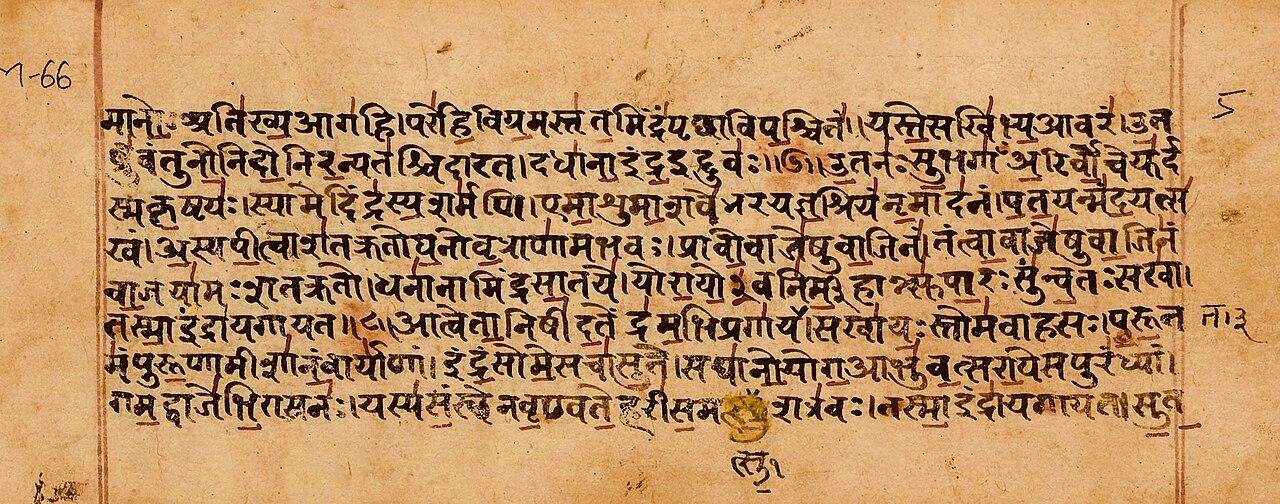 न-66
मानो अतिख्यआगहि।परेहिविग्रमस्तृतमिंद्रंपृछाविपश्चितं॥यस्तेसखिभ्यआवरं।उत
5
ब्रुवंतुनोनिदोनिरन्यतश्चिदारत।दधानाइंद्रइद्दुवः॥७॥उतनःसुभगाँअरिर्वोचेयुर्द
स्मकृष्टयः।स्यामेदिंद्रस्यशर्मणि।एमाशुमाशवेभरयज्ञश्रियंनृमादनं।पतयन्मंदयत्स
खं।अस्यपीत्वाशतक्रतोघनोवृत्राणामभवः।प्रावोवाजेषुवाजिनं तंत्वावाजेषुवाजिनं
वाजयामःशतक्रतो।धनानामिंद्रसातये।योरायो३वनिर्म३हान्त्सुपारःसुन्वतःसखा।
तस्माइंद्रायगायत॥८॥आत्वेतानिषीदतेंद्रमभिप्रगाय।सखायःस्तोमवाहसः।पुरूत त।३
मंपुरूणामीशानंवार्याणां।इंद्रंसोमेसचासुते।सघानोयोगआभुवत्सरायेसपुरंध्यां।
गमद्वाजेभिरासनः।यस्यसंस्थेनवृण्वतेहरीसम शत्रवः।तस्माइंद्रायगायत।सुत
त्सु१